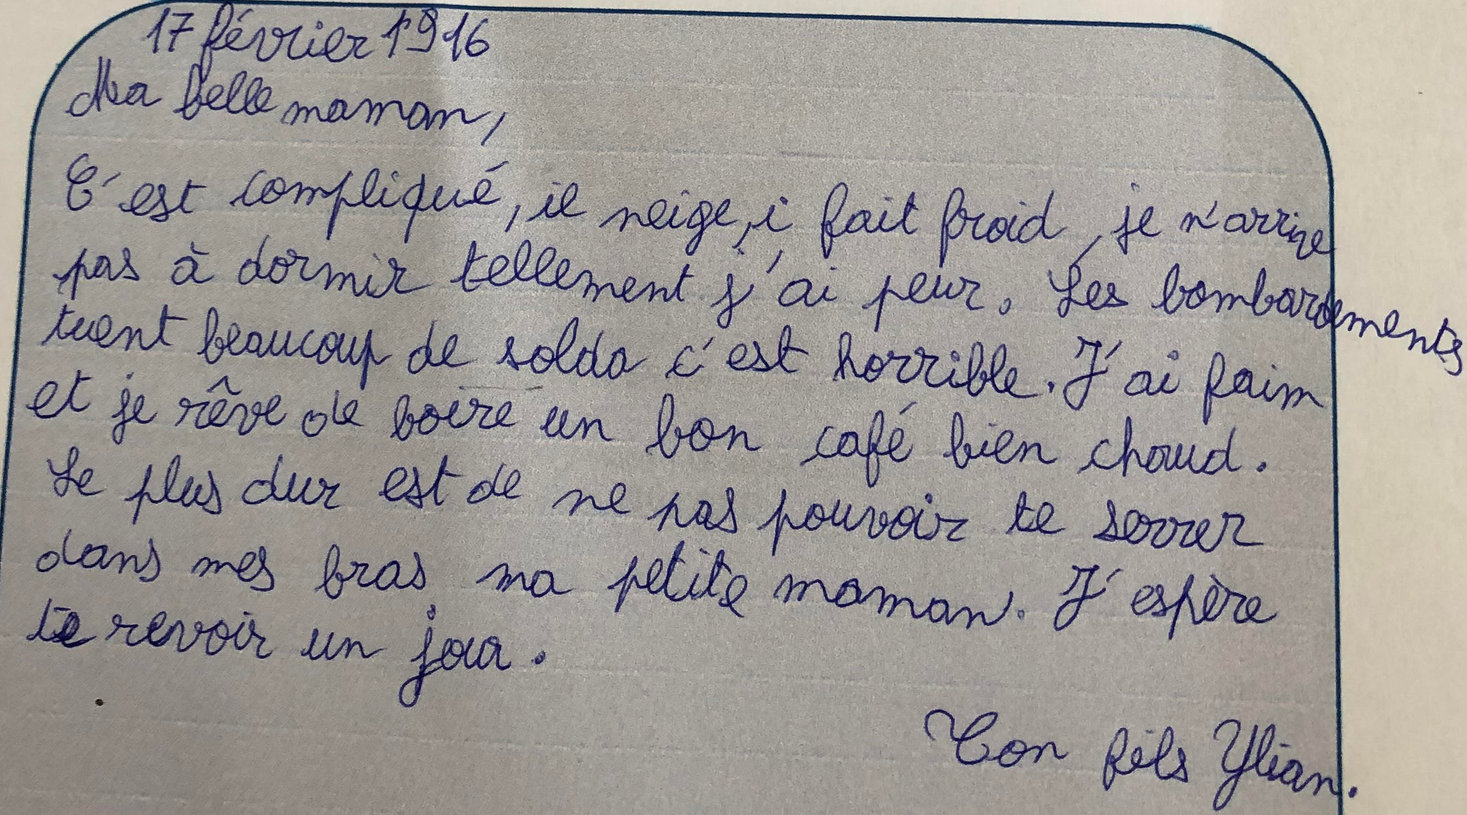 17 février 1916
Ma belle maman,
C'est compliqué, il neige, i fait froid, je n'arrive
pas à dormir tellement j'ai peur. Les bombardements
tuent beaucoup de solda c'est horrible. J'ai faim
et je rêve de boire un bon café bien chaud.
Le plus dur est de ne pas pouvoir te serrer
dans mes bras ma petite maman. J'espère
te revoir un jour.
Ton fils Ylian.